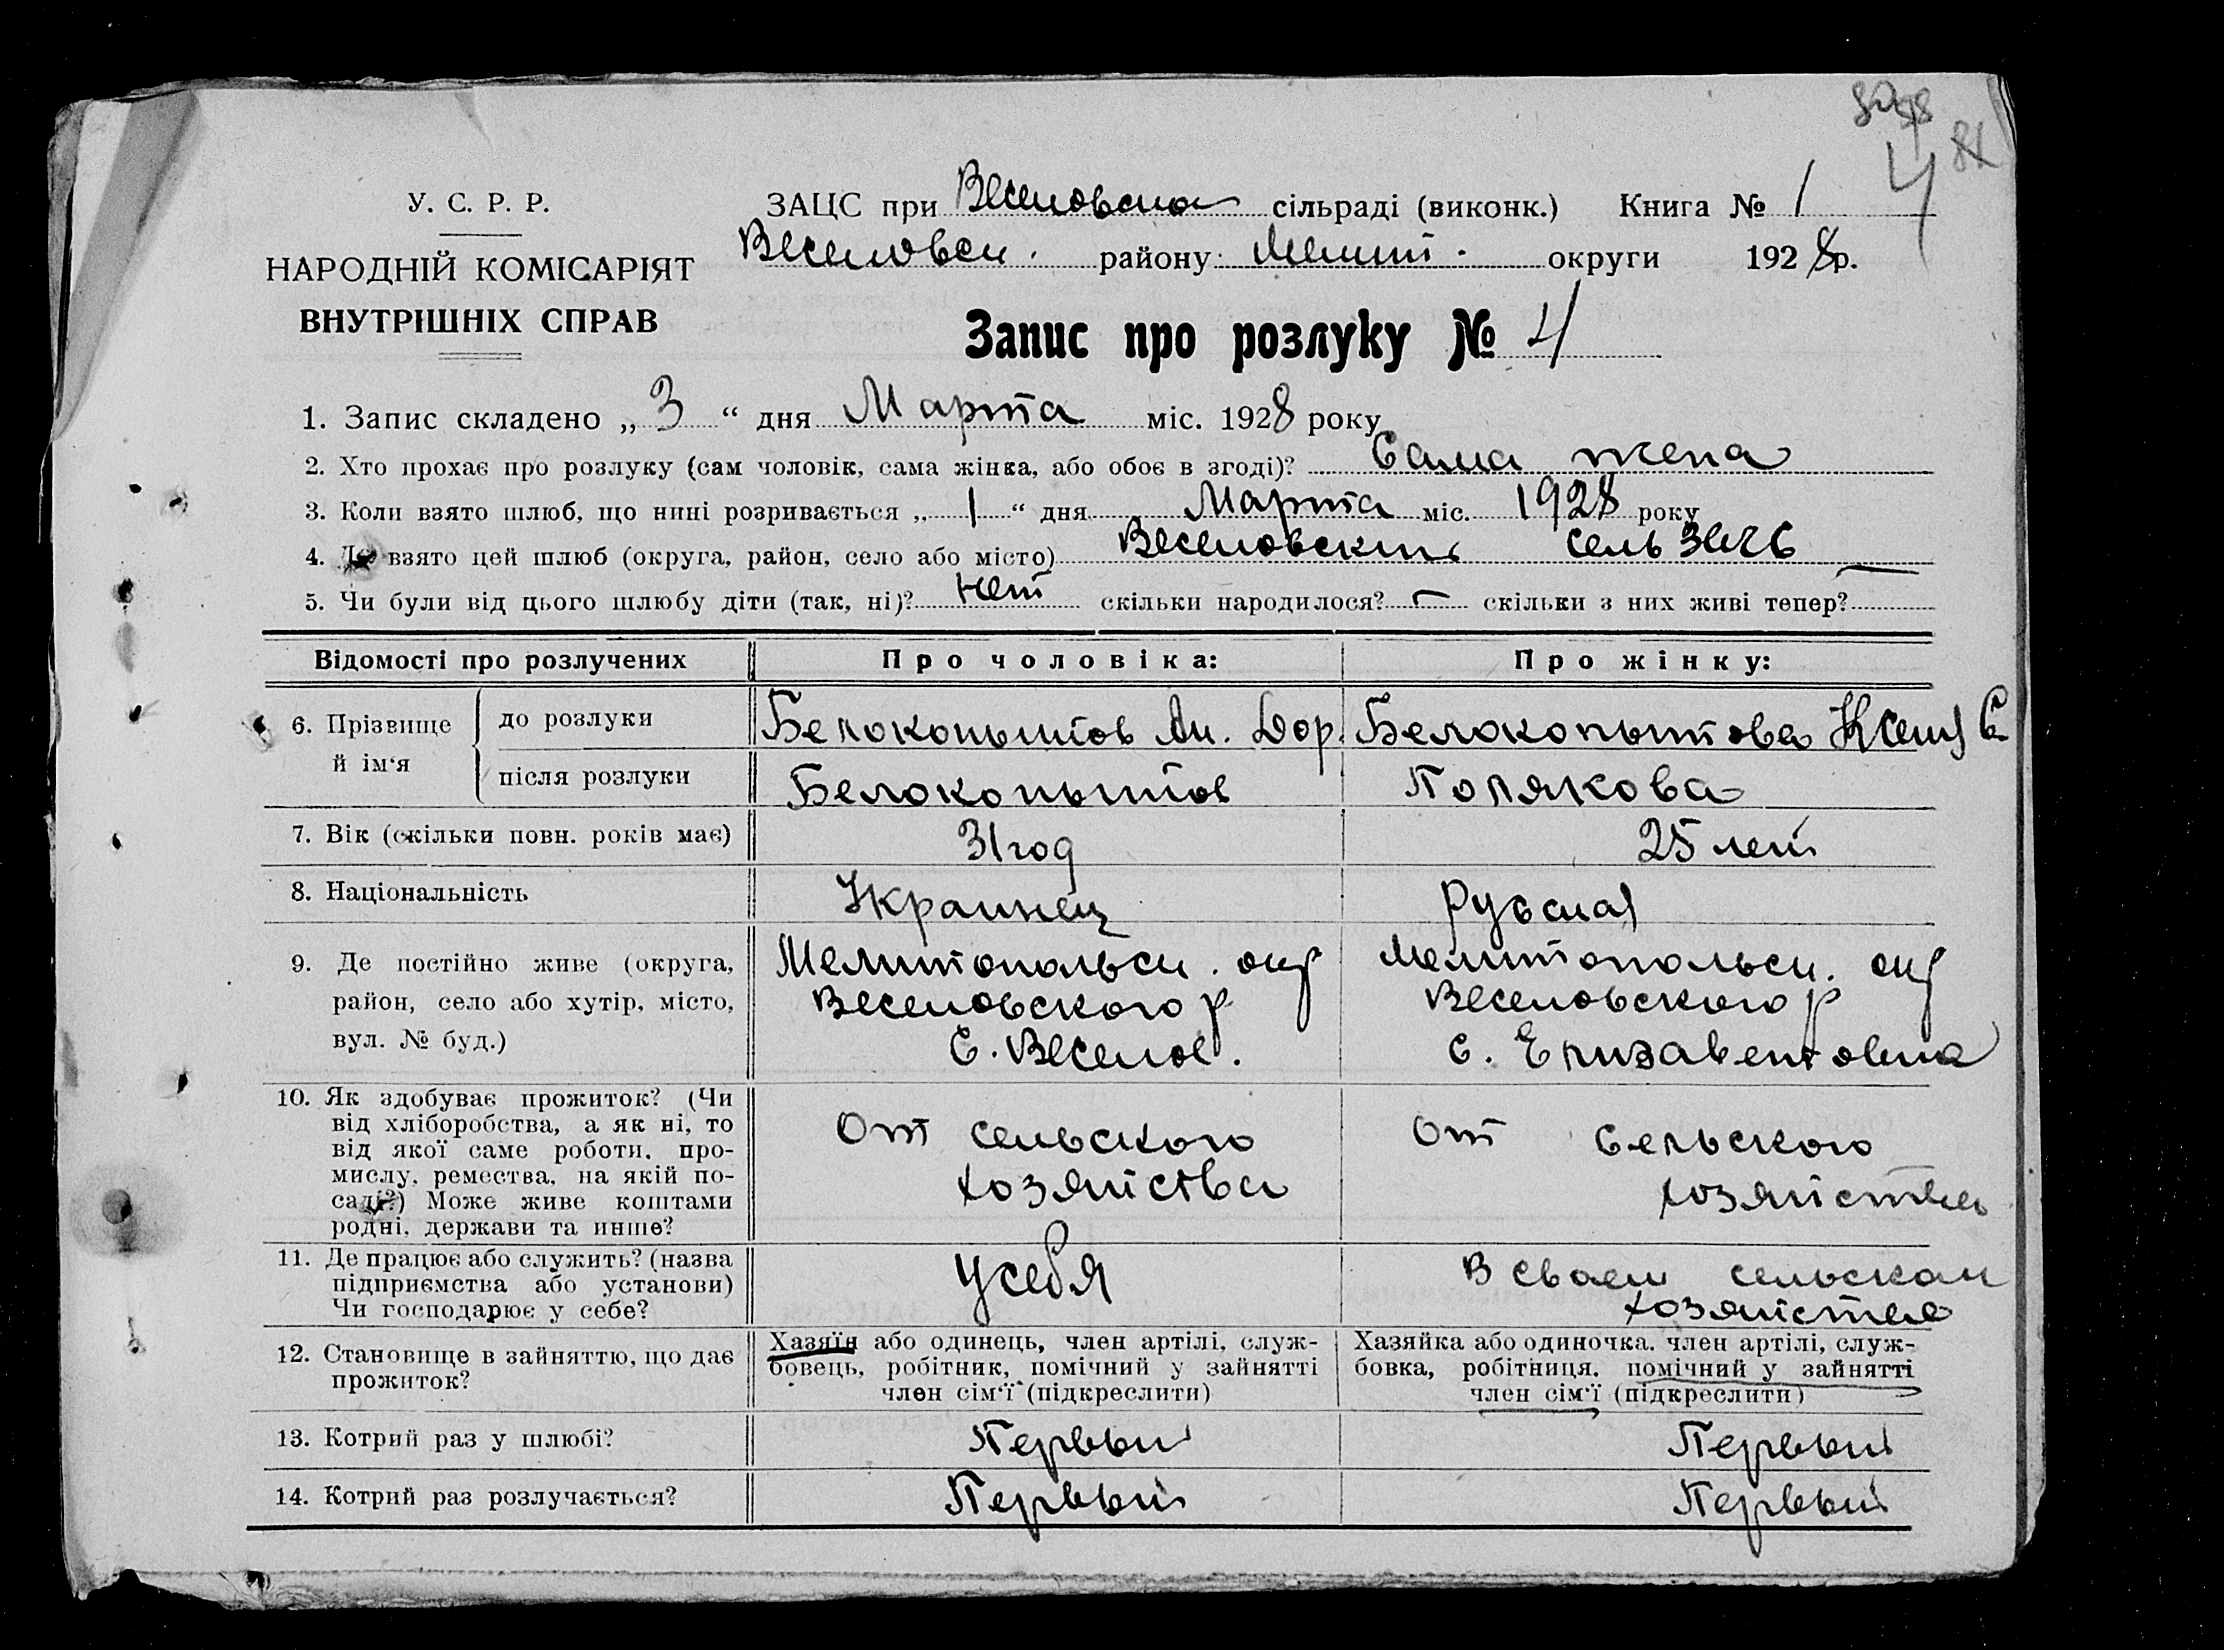 4
81
У. С. Р. Р.
НАРОДНІЙ КОМІСАРІЯТ
ВНУТРІШНІХ СПРАВ
ЗАЦС при Веселовском сільраді (виконк.) Книга № 1
Веселовск. району Мелит. округи 1928 р.
Запис про розлуку № 4
1. Запис складено „ 3 “ дня Марта міс. 1928 року
2. Хто прохає про розлуку (сам чоловік, сама жінка, або обоє в згоді)? Сама жена
3. Коли взято шлюб, що нині розривається „ 1 “ дня Марта міс. 1928 року
4. Де взято цей шлюб (округа, район, село або місто) Веселовский сель
5. Чи були від цього шлюбу діти (так, ні)? нет скільки народилося? — скільки з них живі тепер? —
Відомості про розлучених
Про чоловіка:
Про жінку:
6. Прізвище й ім‘я
до розлуки
Белокопытов Ан. Дор.
Белокопытова Ксения С
після розлуки
Белокопытов
Полякова
7. Вік (скільки повн. років має)
31 год
25 лет
8. Національність
Украинец
Руская
9. Де постійно живе (округа,
район, село або хутір, місто,
вул. № буд.)
Мелитопольск. окр
Веселовского р
с. Веселое.
Мелитопольск. окр
Веселовского р
с. Елизаветовка
10. Як здобуває прожиток? (Чи
від хліборобства, а як ні, то
від якої саме роботи, про-
мислу, ремества, на якій по-
саді?) Може живе коштами
родні, держави та инше?
От сельского
хозяйства
от сельского
хозяйства
11. Де працює або служить? (назва
підприємства або установи)
Чи господарює у себе?
У себя
В сваем сельском
хозяйстве
12. Становище в зайняттю, що дає
прожиток?
Хазяїн або одинець, член артілі, служ-
бовець, робітник, помічний у зайнятті
член сім‘ї (підкреслити)
Хазяйка або одиночка, член артілі, служ-
бовка, робітниця, помічний у зайнятті
член сім‘ї (підкреслити)
13. Котрий раз у шлюбі?
Первый
Первый
14. Котрий раз розлучається?
Первый
Первый